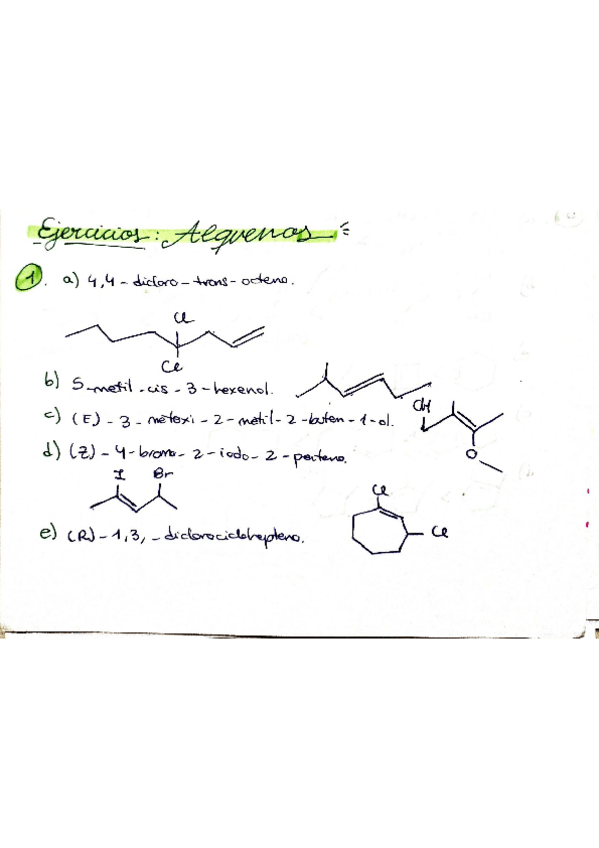 Ejercicios: Alquenos
1. a) 4,4-dicloro-trans-octeno.
Cl
Cl
b) 5-metil-cis-3-hexenol.
c) (E)-3-metoxi-2-metil-2-buten-1-ol.
OH
O
d) (Z)-4-bromo-2-iodo-2-penteno.
I Br
e) (R)-1,3,-diclorociclohepteno.
Cl
Cl